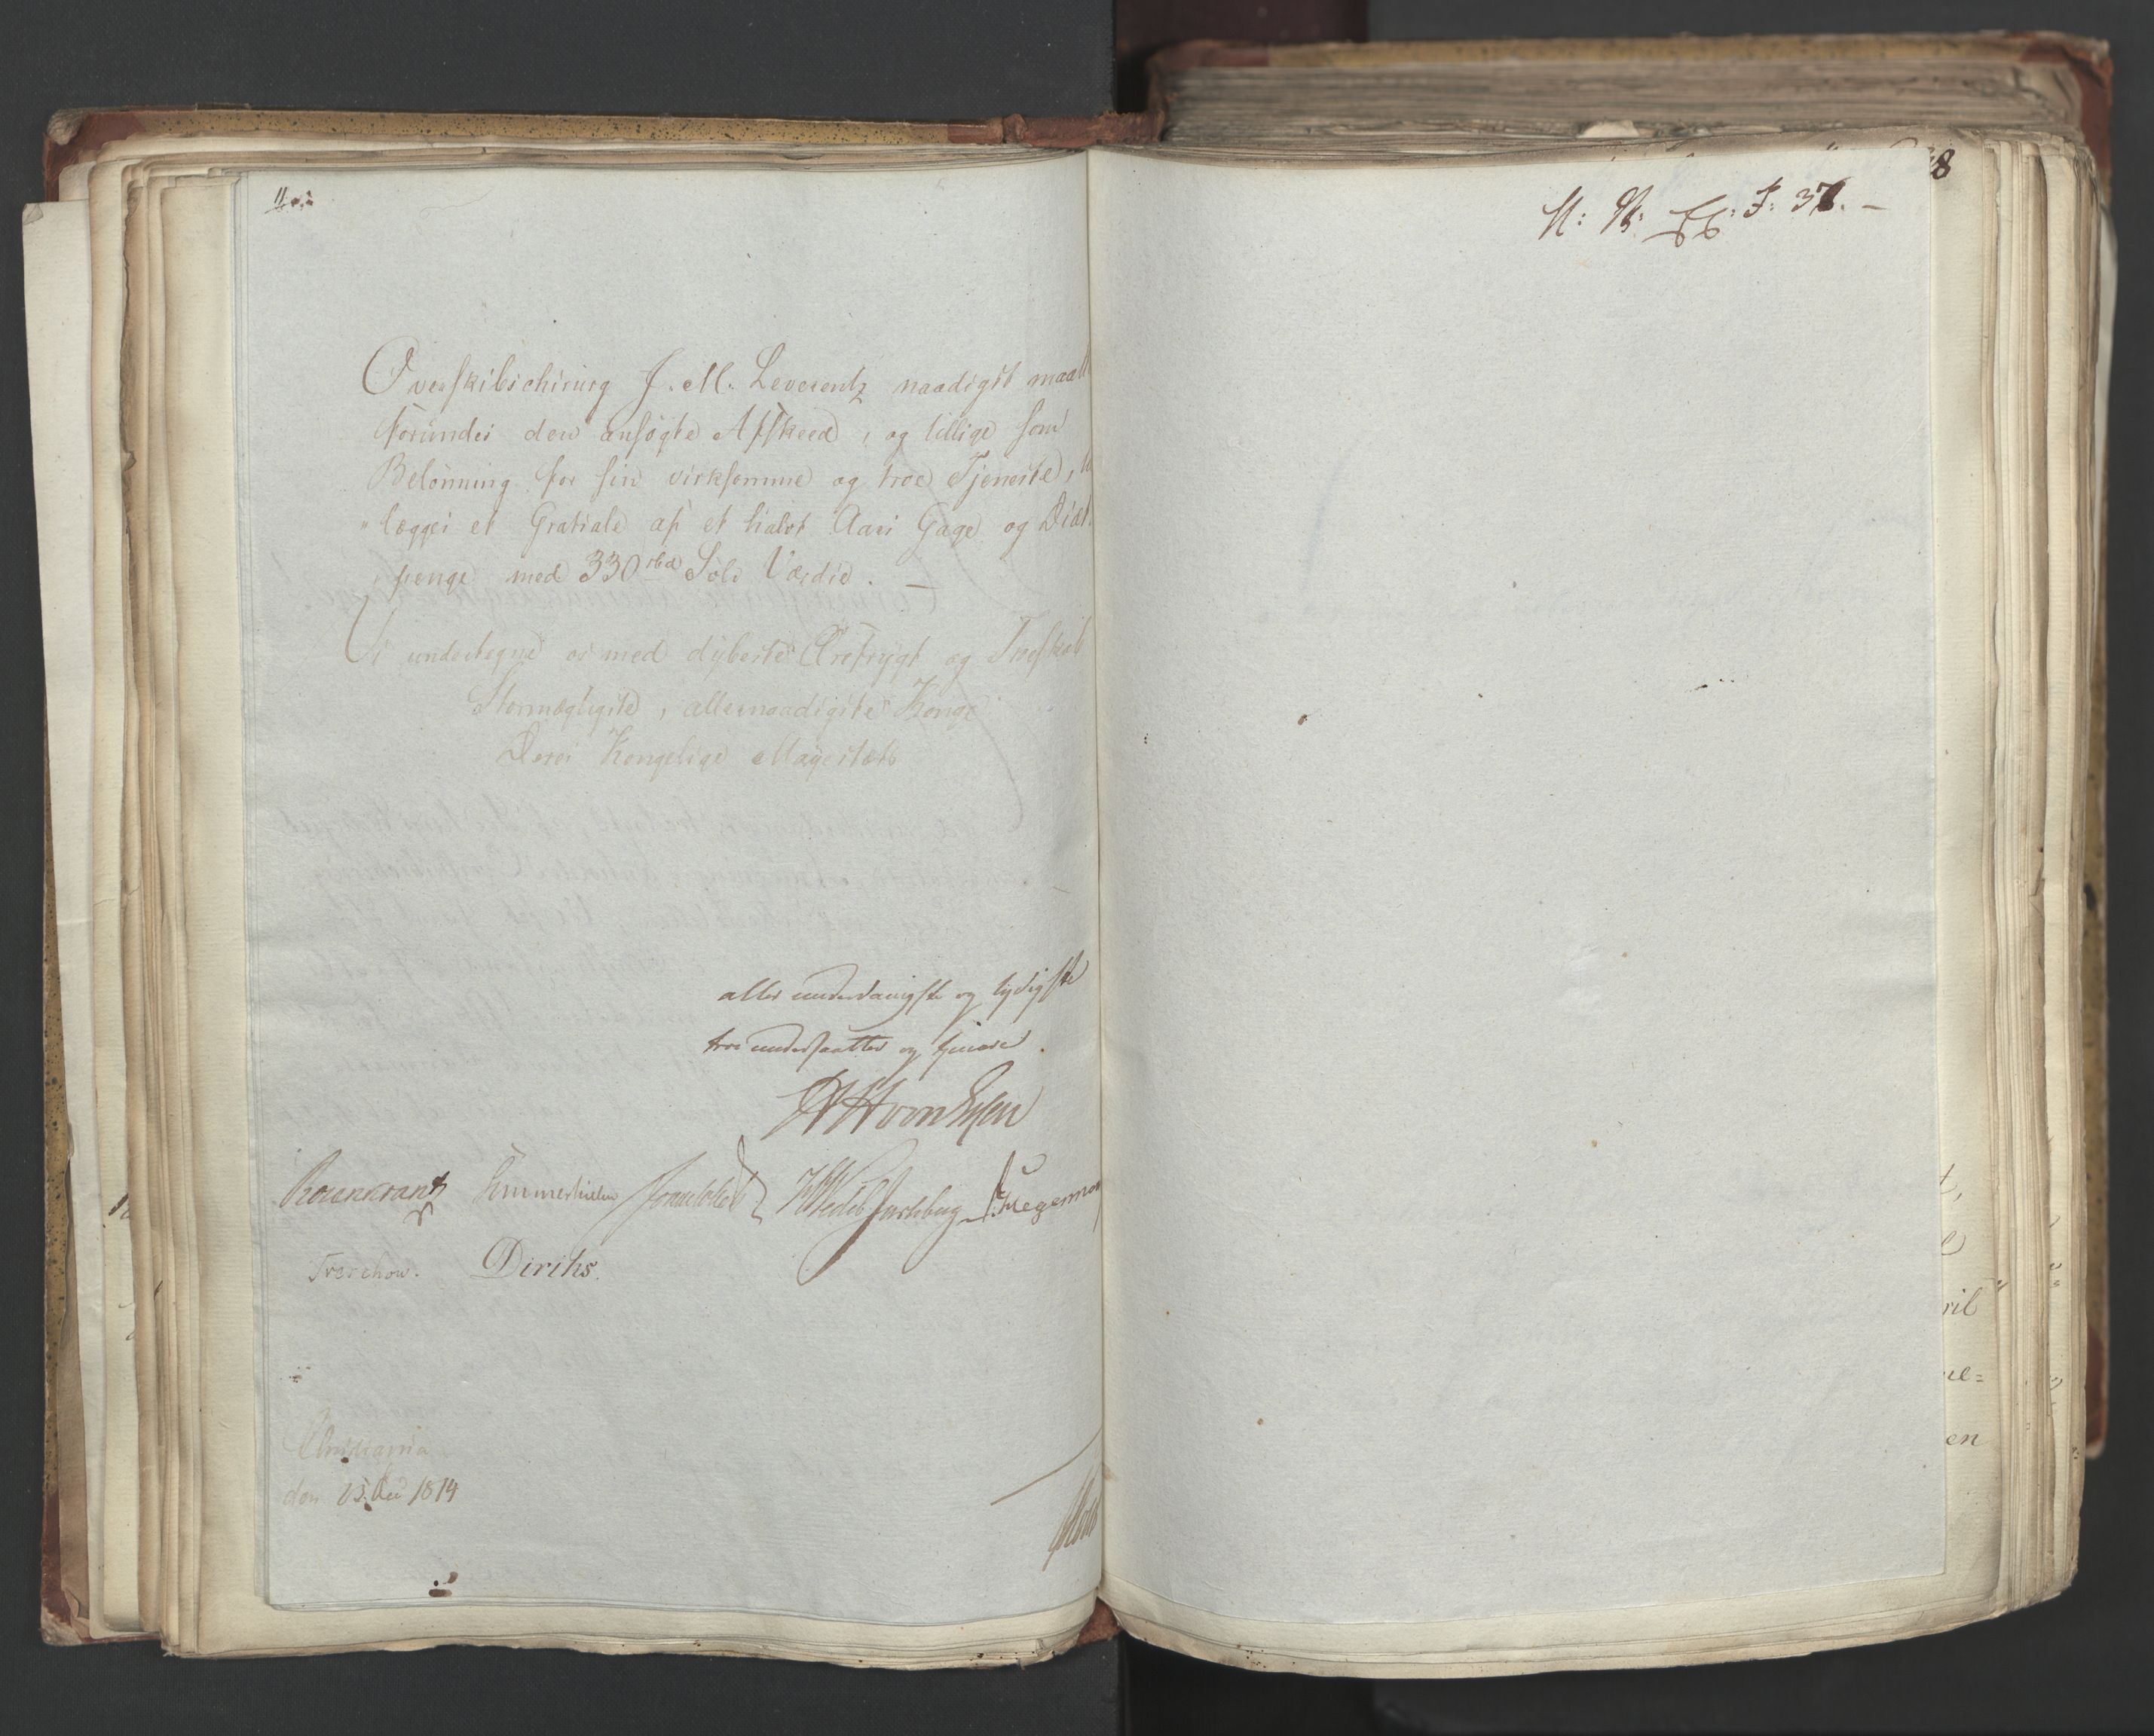 Overskibschirurg J. M. Leverentz naadigst maatte
forundes den ansøgte Afskeed, og tillige som
Belønning for sin virksomme og troe Tjeneste,
lægges et Gratiale af et halvt Aars Gage og Diæt
penge med 330 rbd Sølv Værdie. —
Vi undertegne os med dybeste Ærefrygt og Troskab
Stormægtigste, allernaadigste Konge
Deres Kongelige Majestæts
aller underdanigste og lydigste
troe undersaatter og tjenere.
Rosenkrantz Sommerhielm Jonas Collett HWedel Jarlsberg Hegermann
Treschow. Diriks.
Christiania
den 15. Dec 1814
38
N: R: Ex: J: 37. —
ril
en